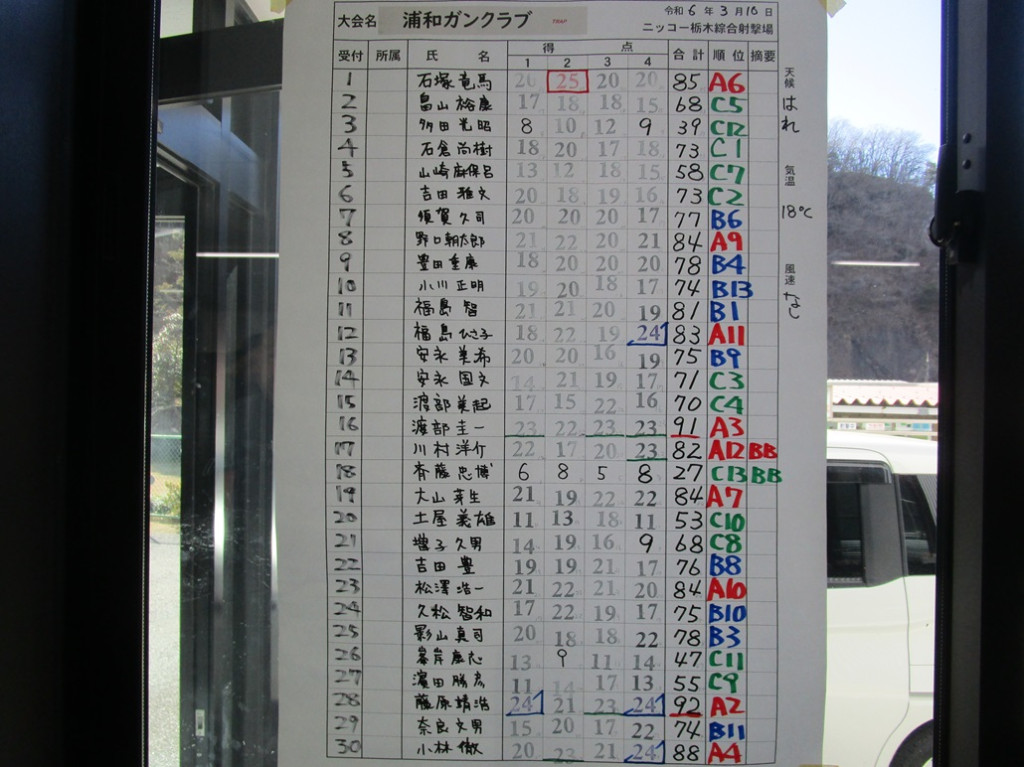 大会名 浦和ガンクラブ TRAP 令和 6 年 3 月 10 日
ニッコー栃木綜合射撃場
受付 所属 氏 名 得 点 合計 順位 摘要
1 2 3 4
1 石塚 竜馬 20 25 20 20 85 A6
2 畠山 裕康 17 18 18 15 68 C5
3 多田 光昭 8 10 12 9 39 C12
4 石倉 尚樹 18 20 17 18 73 C1
5 山崎 麻保呂 13 12 18 15 58 C7
6 吉田 雅文 20 18 19 16 73 C2
7 須賀 久司 20 20 20 17 77 B6
8 野口 朝太郎 21 22 20 21 84 A9
9 豊田 重康 18 20 20 20 78 B4
10 小川 正明 19 20 18 17 74 B13
11 福島 智 21 21 20 19 81 B1
12 福島 ひさ子 18 22 19 24 83 A11
13 安永 美希 20 20 16 19 75 B9
14 安永 国文 14 21 19 17 71 C3
15 渡部 美起 17 15 22 16 70 C4
16 渡部 圭一 23 22 23 23 91 A3
17 川村 洋介 22 17 20 23 82 A12 BB
18 斉藤 忠博 6 8 5 8 27 C13 BB
19 大山 芽生 21 19 22 22 84 A7
20 土屋 義雄 11 13 18 11 53 C10
21 増子 久男 14 19 16 9 68 C8
22 吉田 豊 19 19 21 17 76 B8
23 松澤 浩一 21 22 21 20 84 A10
24 久松 智和 17 22 19 17 75 B10
25 影山 真司 20 18 18 22 78 B3
26 岸 13 9 11 14 47 C11
27 濱田 勝彦 11 14 17 13 55 C9
28 藤原 靖浩 24 21 23 24 92 A2
29 奈良 文男 15 20 17 22 74 B11
30 小林 徹 20 23 21 24 88 A4
天候 はれ
気温 18℃
風速 なし